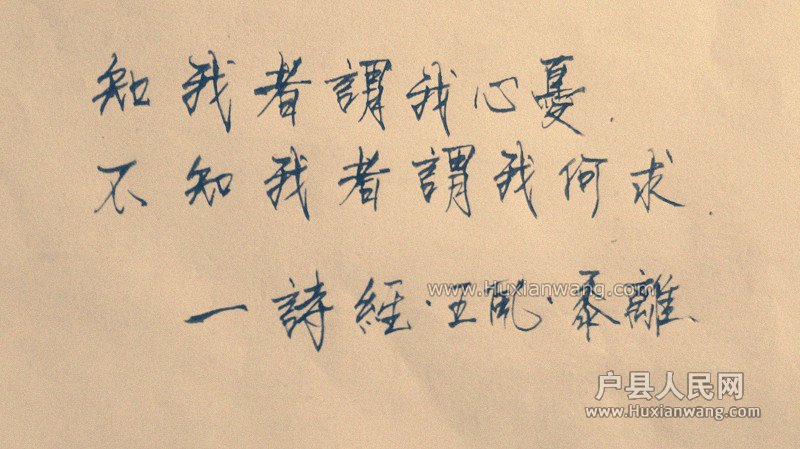 知我者謂我心憂.
不知我者謂我何求.
一詩經·王風·黍離
www.Huxianwang.com
户县人民网
www.Huxianwang.com